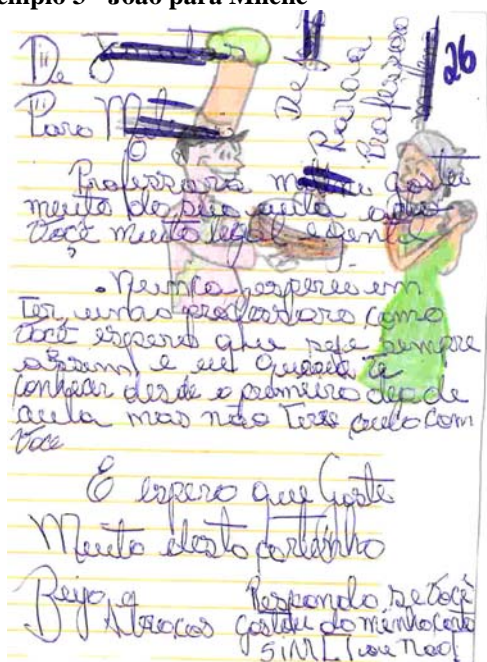 emplo 3 - João para Milene
De
Para M
De J
Para a
Professora
26
Professora gostei
muito do sua aula acho
você muito legal e gentil
Nunca esperei um
Ter, unha professora como
você espero que seje sempre
assim e eu queria te
conhecer desde o primeiro dia de
aula mas não Teve aula com
você
E espero que Goste
Muito desta cartinho
Beijo e
Abraços
Responda se você
gostou do minha carta
SIM [ ] ou não [